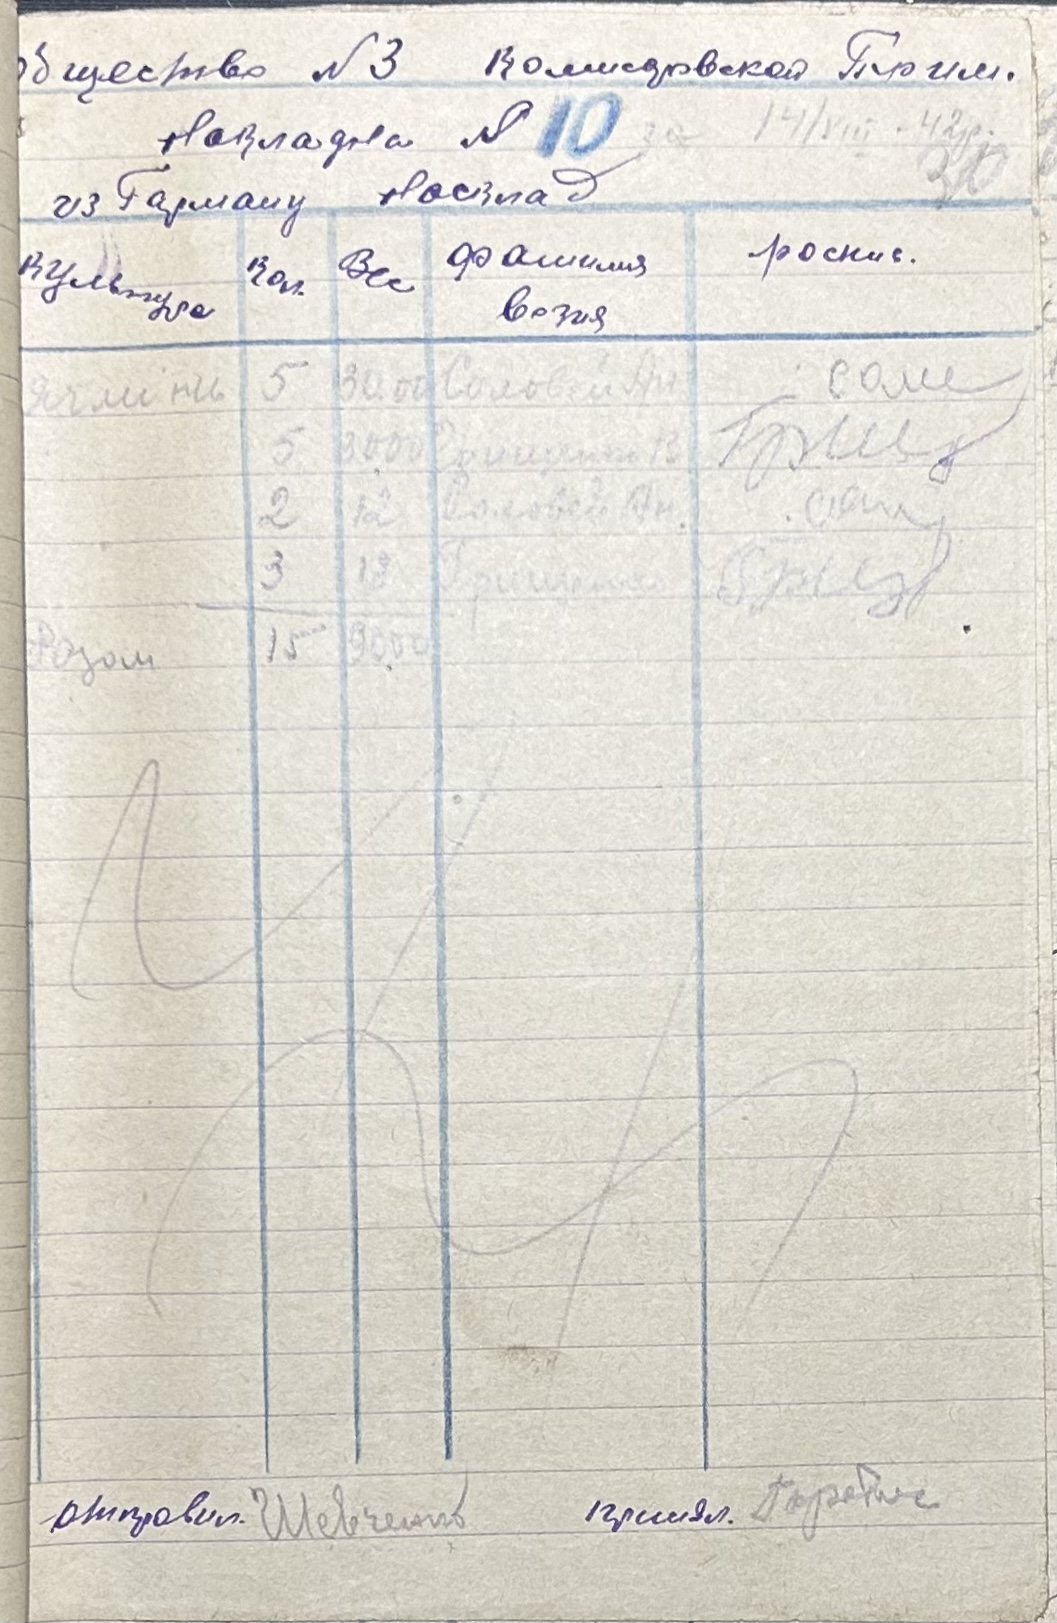 общество N3 Комисаровской Прим.
Накладна N 10 за 14/VIII - 42р.
30
из Гарману На склад
Культура Кол. Вес фамилия возия роспис.
Ячмінь 5 3000 Соловей Ан
5 3000 Грищенко В Грищ
2 12 Соловей Ан.
3 18 Грищенко Грищ
Разом 15 9000
отправил. Шевченко принял.